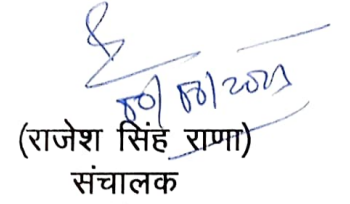 (राजेश सिंह राणा)
संचालक